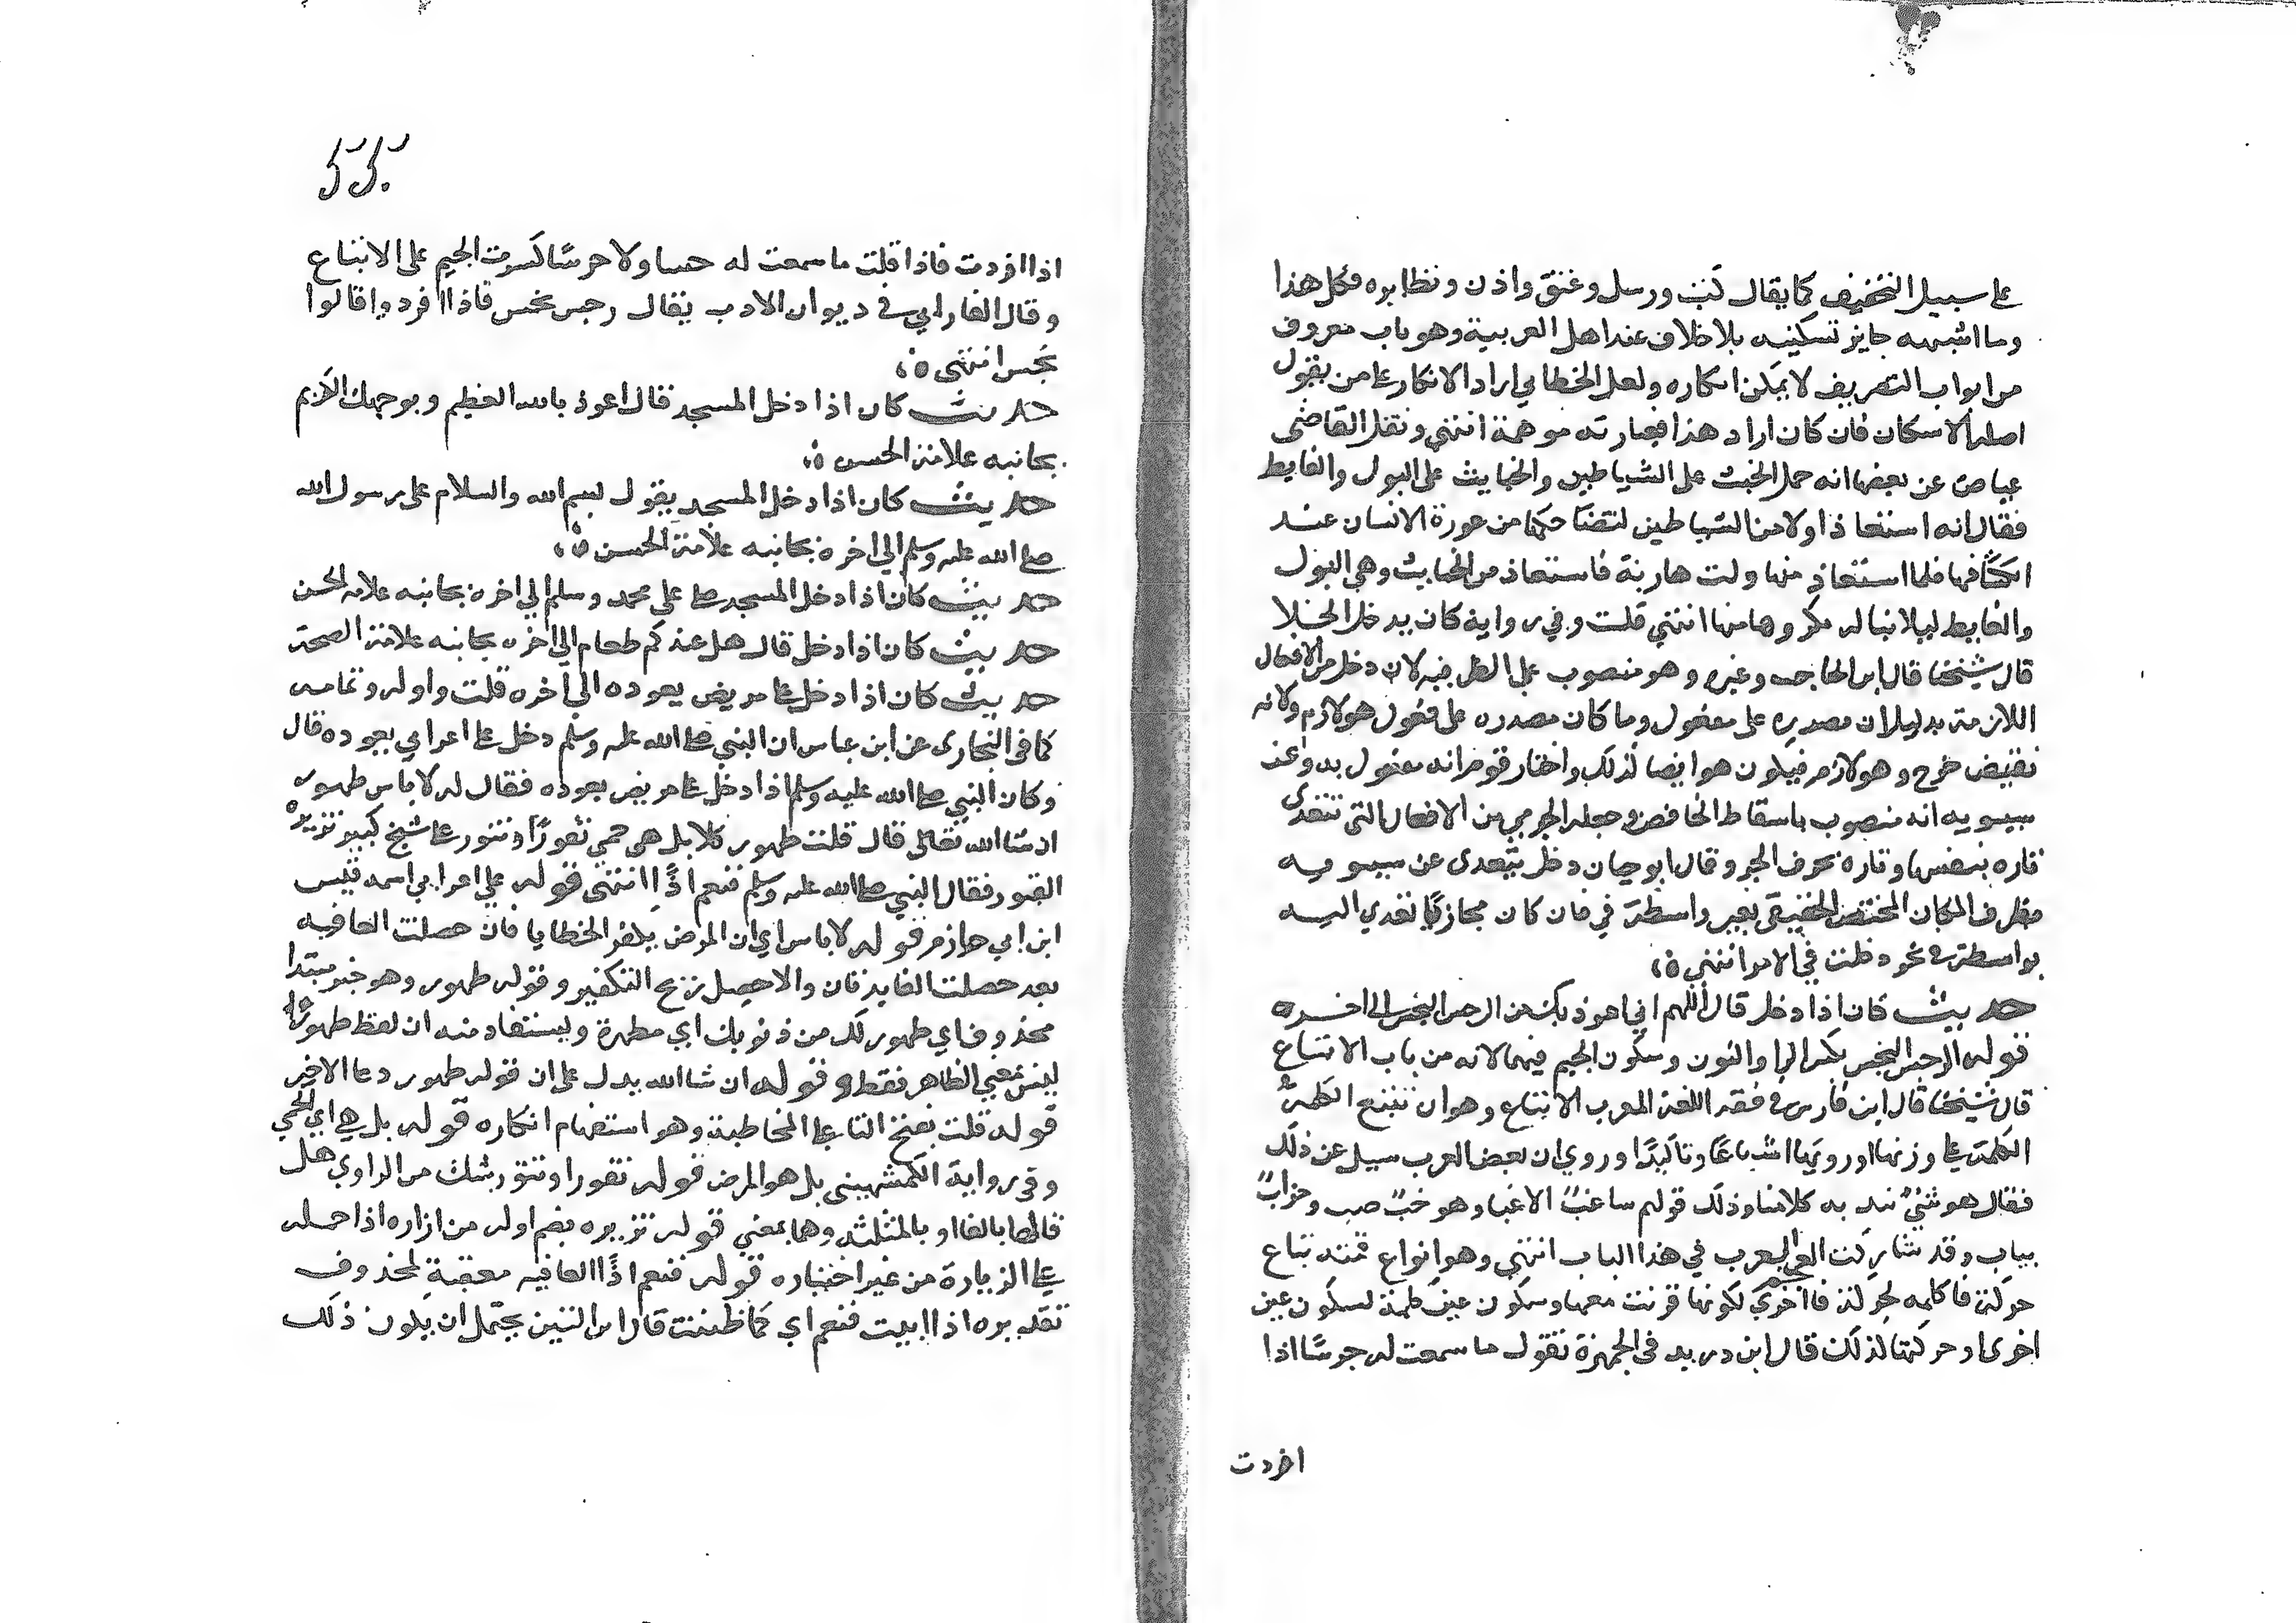 على سبيل التخفيف كما يقال كتب ورسل وعنق واذن ونظايره فكل هذا
وما اشبهه جايز تسكينه بلا خلاف عند اهل العربية وهو باب معروف
من ابواب التصريف لا يمكن انكاره ولعل الخطابي اراد الانكار على من يقول
اصله الاسكان فان كان اراد هذا فعبارته موهمة انتهى ونقل القاضى
عياض عن بعضهم انه حمل الخبث على الشياطين والخبايث على البول والغايط
فقال انه استعاذ اولا من الشياطين لتضاحكها من عورة الانسان عند
انكشافها فلما استعاذ منها ولت هاربة فاستعاذ من الخبايث وهي البول
والغايط ليلا يناله مكروهها منها انتهى قلت وفي رواية كان يدخل الخلا
قال شيخنا قال ابن الحاجب وغيره وهو منصوب على الظرفيه لان دخل من الافعال
اللازمة بدليل ان مصدره على مفعول وما كان مصدره على فعول هو لازم ولانه
نقيض خرج وهو لازم فيكون هو ايضا لذلك واختار قوم انه مفعول به وعن
سيبويه انه منصوب باسقاط الخافض وجعله الجرمي من الافعال التي تتعدى
تاره بنفسها وتاره بحرف الجر وقال ابو حيان دخل يتعدى عن سيبويه
مظرف المكان المختص الحقيقى بغير واسطة في فان كان مجازيا تعدي اليه
بواسطة في نحو دخلت في الامر انتهى ه،
حديث كان اذا دخل قال اللهم اني اعوذ بك من الرجس النجس الى اخره
قوله الرجس النجس بكسر الرا والنون وسكون الجيم فيهما لانه من باب الاتباع
قال شيخنا قال ابن فارس في فقه اللغة المعرب الاتباع وهو ان تتبع الكلمة
الكلمة على وزنها او رويها اشباعا وتاكيدا وروي ان بعض العرب سيل عن ذلك
فقال هو شيء نتد به كلامنا وذلك قولهم ساغب لاغب وهو خب ضب وخراب
يباب وقد شاركت العجم العرب في هذا الباب انتهى وهو انواع فمنه تباع
حركة فاكلمه لحركة فا اخرى لكونها قرنت معها وسكون عين كلمة لسكون عين
اخرى او حركتها لذلك قال ابن دريد في الجمهرة تقول ما سمعت له جرسا اذا
افردت
اذا افردت فاذا قلت ما سمعت له حسا ولا جرسا كسرت الجيم على الاتباع
وقال الفارابي في ديوان الادب يقال رجس نجس فاذا افردوا قالوا
نجس انتهى ه،
حديث كان اذا دخل المسجد قال اعوذ بالله العظيم وبوجهك الكريم
بجانبه علامة الحسن ه،
حديث كان اذا دخل المسجد يقول بسم الله والسلام على رسول الله
صلى الله عليه وسلم الي اخره بجانبه علامة الحسن ه،
حديث كان اذا دخل المسجد صلى على محمد وسلم الي اخره بجانبه علامة الحسن
حديث كان اذا دخل قال هل عندكم طعام الى اخره بجانبه علامة الصحة
حديث كان اذا دخل على مريض يعوده الى آخره قلت واوله وتمامه
كما في البخارى عن ابن عباس ان النبي صلى الله عليه وسلم دخل على اعرابي يعوده قال
وكان النبي صلى الله عليه وسلم اذا دخل على مريض يعوده فقال له لا باس طهور
ان شا الله تعالى قال قلت طهور كلا بل هى حمي تفور او تثور على شيخ كبير تزيره
القبور فقال النبي صلى الله عليه وسلم فنعم اذًا انتهى قوله على اعرابي اسمه قيس
ابن ابي حازم قوله لا باس اي ان المرض يكفر الخطايا فان حصلت العافيه
بعد حصلت الفايدتان والا حصل ربح التكفير وقوله طهور وهو خبر مبتدا
محذوف اي طهور لك من ذنوبك اي مطهرة ويستفاد منه ان لفظ طهور
ليس بمعني الظاهر فقط وقوله ان شا الله يدل على ان قوله طهور دعا لا خبر
قوله قلت بفتح التا على المخاطبة وهو استفهام انكاره قوله بل هي اي الحمي
وفى رواية الكشميهني بل هو المرض قوله تفور او تثور بشك من الراوي هل
قالها بالفا او بالمثلثه وهما بمعني قوله تزيره بضم اوله من ازاره اذا حمله
على الزيارة من غير اختياره قوله فنعم اذًا الفا فيه معقبة لمحذوف
تقديره اذا ابيت فنعم اي كما ظننت قال ابن التين يحتمل ان يكون ذلك